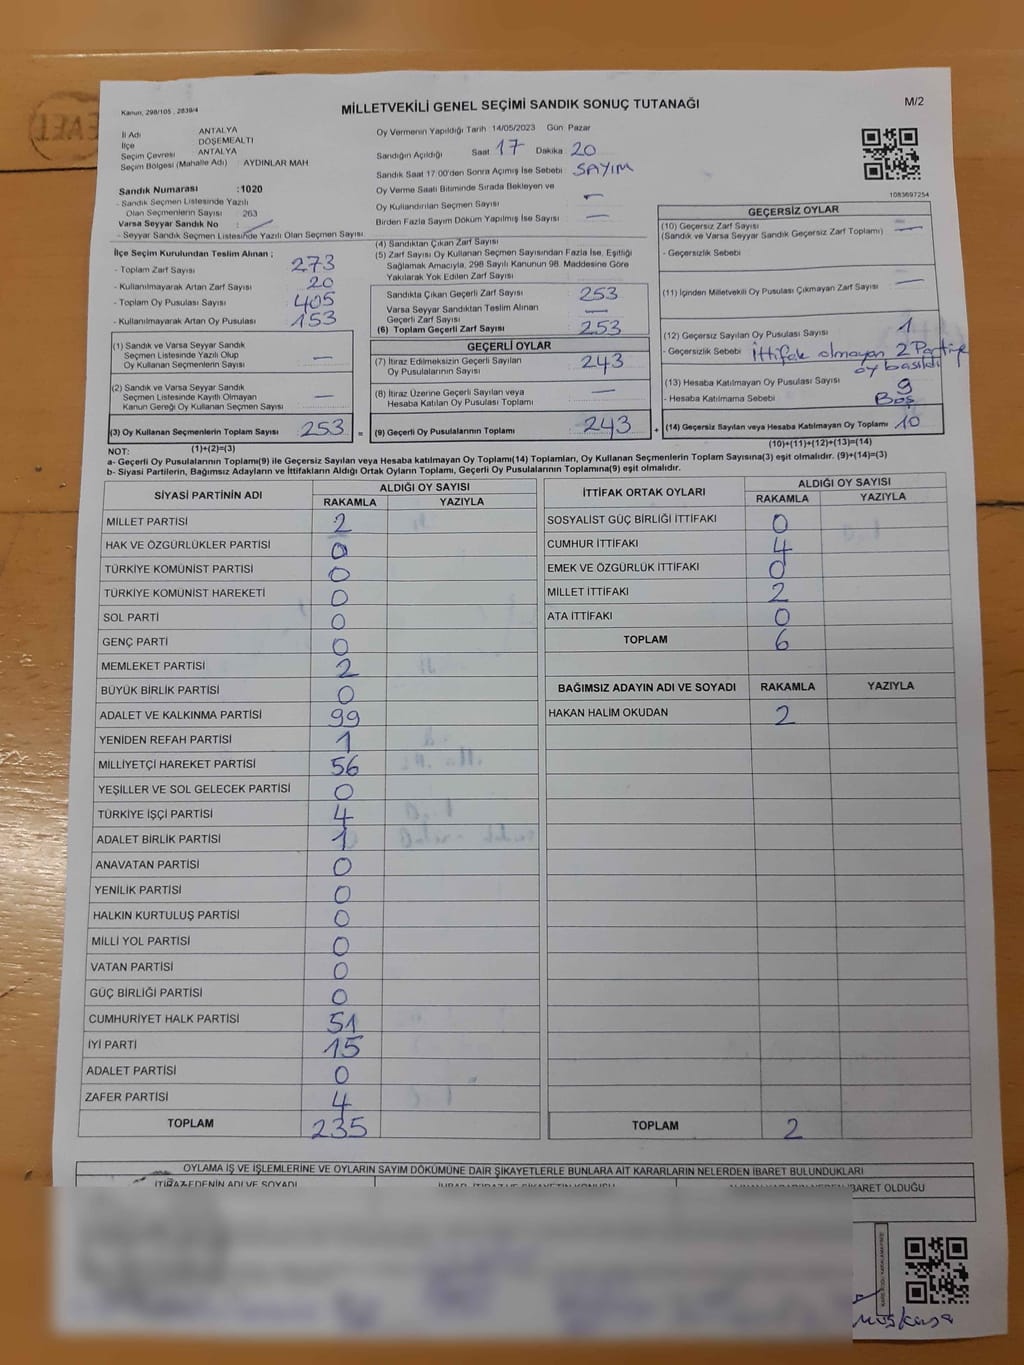 Kanun, 298/105 , 2839/4
MİLLETVEKİLİ GENEL SEÇİMİ SANDIK SONUÇ TUTANAĞI
M/2
İl Adı ANTALYA
İlçe DÖŞEMEALTI
Seçim Çevresi ANTALYA
Seçim Bölgesi (Mahalle Adı) AYDINLAR MAH
Sandık Numarası :1020
- Sandık Seçmen Listesinde Yazılı
Olan Seçmenlerin Sayısı : 263
Varsa Seyyar Sandık No :
- Seyyar Sandık Seçmen Listesinde Yazılı Olan Seçmen Sayısı
Oy Vermenin Yapıldığı Tarih 14/05/2023 Gün Pazar
Sandığın Açıldığı Saat 17 Dakika 20
Sandık Saat 17:00'den Sonra Açımış İse Sebebi SAYIM
Oy Verme Saati Bitiminde Sırada Bekleyen ve
Oy Kullandırılan Seçmen Sayısı –
Birden Fazla Sayım Döküm Yapılmış İse Sayısı —
1083697254
İlçe Seçim Kurulundan Teslim Alınan ;
- Toplam Zarf Sayısı 273
- Kullanılmayarak Artan Zarf Sayısı 20
- Toplam Oy Pusulası Sayısı 405
- Kullanılmayarak Artan Oy Pusulası 153
(1) Sandık ve Varsa Seyyar Sandık
Seçmen Listesinde Yazılı Olup
Oy Kullanan Seçmenlerin Sayısı —
(2) Sandık ve Varsa Seyyar Sandık
Seçmen Listesinde Kayıtlı Olmayan
Kanun Gereği Oy Kullanan Seçmen Sayısı —
(3) Oy Kullanan Seçmenlerin Toplam Sayısı 253 =
(4) Sandıktan Çıkan Zarf Sayısı
(5) Zarf Sayısı Oy Kullanan Seçmen Sayısından Fazla İse, Eşitliği
Sağlamak Amacıyla, 298 Sayılı Kanunun 98. Maddesine Göre
Yakılarak Yok Edilen Zarf Sayısı
Sandıkta Çıkan Geçerli Zarf Sayısı 253
Varsa Seyyar Sandıktan Teslim Alınan
Geçerli Zarf Sayısı —
(6) Toplam Geçerli Zarf Sayısı 253
GEÇERLİ OYLAR
(7) İtiraz Edilmeksizin Geçerli Sayılan
Oy Pusulalarının Sayısı 243
(8) İtiraz Üzerine Geçerli Sayılan veya
Hesaba Katılan Oy Pusulası Toplamı —
(9) Geçerli Oy Pusulalarının Toplamı 243 +
GEÇERSİZ OYLAR
(10) Geçersiz Zarf Sayısı
(Sandık ve Varsa Seyyar Sandık Geçersiz Zarf Toplamı) —
- Geçersizlik Sebebi
(11) İçinden Milletvekili Oy Pusulası Çıkmayan Zarf Sayısı —
(12) Geçersiz Sayılan Oy Pusulası Sayısı 1
- Geçersizlik Sebebi İttifak olmayan 2 Partiye
oy basıldı
(13) Hesaba Katılmayan Oy Pusulası Sayısı 9
- Hesaba Katılmama Sebebi Boş
(14) Geçersiz Sayılan veya Hesaba Katılmayan Oy Toplamı 10
NOT: (1)+(2)=(3) (10)+(11)+(12)+(13)=(14)
a- Geçerli Oy Pusulalarının Toplamı(9) ile Geçersiz Sayılan veya Hesaba katılmayan Oy Toplamı(14) Toplamları, Oy Kullanan Seçmenlerin Toplam Sayısına(3) eşit olmalıdır. (9)+(14)=(3)
b- Siyasi Partilerin, Bağımsız Adayların ve İttifakların Aldığı Ortak Oyların Toplamı, Geçerli Oy Pusulalarının Toplamına(9) eşit olmalıdır.
SİYASİ PARTİNİN ADI ALDIĞI OY SAYISI
RAKAMLA YAZIYLA
MİLLET PARTİSİ 2
HAK VE ÖZGÜRLÜKLER PARTİSİ 0
TÜRKİYE KOMÜNİST PARTİSİ 0
TÜRKİYE KOMÜNİST HAREKETİ 0
SOL PARTİ 0
GENÇ PARTİ 0
MEMLEKET PARTİSİ 2
BÜYÜK BİRLİK PARTİSİ 0
ADALET VE KALKINMA PARTİSİ 99
YENİDEN REFAH PARTİSİ 1
MİLLİYETÇİ HAREKET PARTİSİ 56
YEŞİLLER VE SOL GELECEK PARTİSİ 0
TÜRKİYE İŞÇİ PARTİSİ 4
ADALET BİRLİK PARTİSİ 1
ANAVATAN PARTİSİ 0
YENİLİK PARTİSİ 0
HALKIN KURTULUŞ PARTİSİ 0
MİLLİ YOL PARTİSİ 0
VATAN PARTİSİ 0
GÜÇ BİRLİĞİ PARTİSİ 0
CUMHURİYET HALK PARTİSİ 51
İYİ PARTİ 15
ADALET PARTİSİ 0
ZAFER PARTİSİ 4
TOPLAM 235
İTTİFAK ORTAK OYLARI ALDIĞI OY SAYISI
RAKAMLA YAZIYLA
SOSYALİST GÜÇ BİRLİĞİ İTTİFAKI 0
CUMHUR İTTİFAKI 4
EMEK VE ÖZGÜRLÜK İTTİFAKI 0
MİLLET İTTİFAKI 2
ATA İTTİFAKI 0
TOPLAM 6
BAĞIMSIZ ADAYIN ADI VE SOYADI RAKAMLA YAZIYLA
HAKAN HALİM OKUDAN 2
TOPLAM 2
OYLAMA İŞ VE İŞLEMLERİNE VE OYLARIN SAYIM DÖKÜMÜNE DAİR ŞİKAYETLERLE BUNLARA AİT KARARLARIN NELERDEN İBARET BULUNDUKLARI
İTİRAZ EDENİN ADI VE SOYADI İBARET OLDUĞU